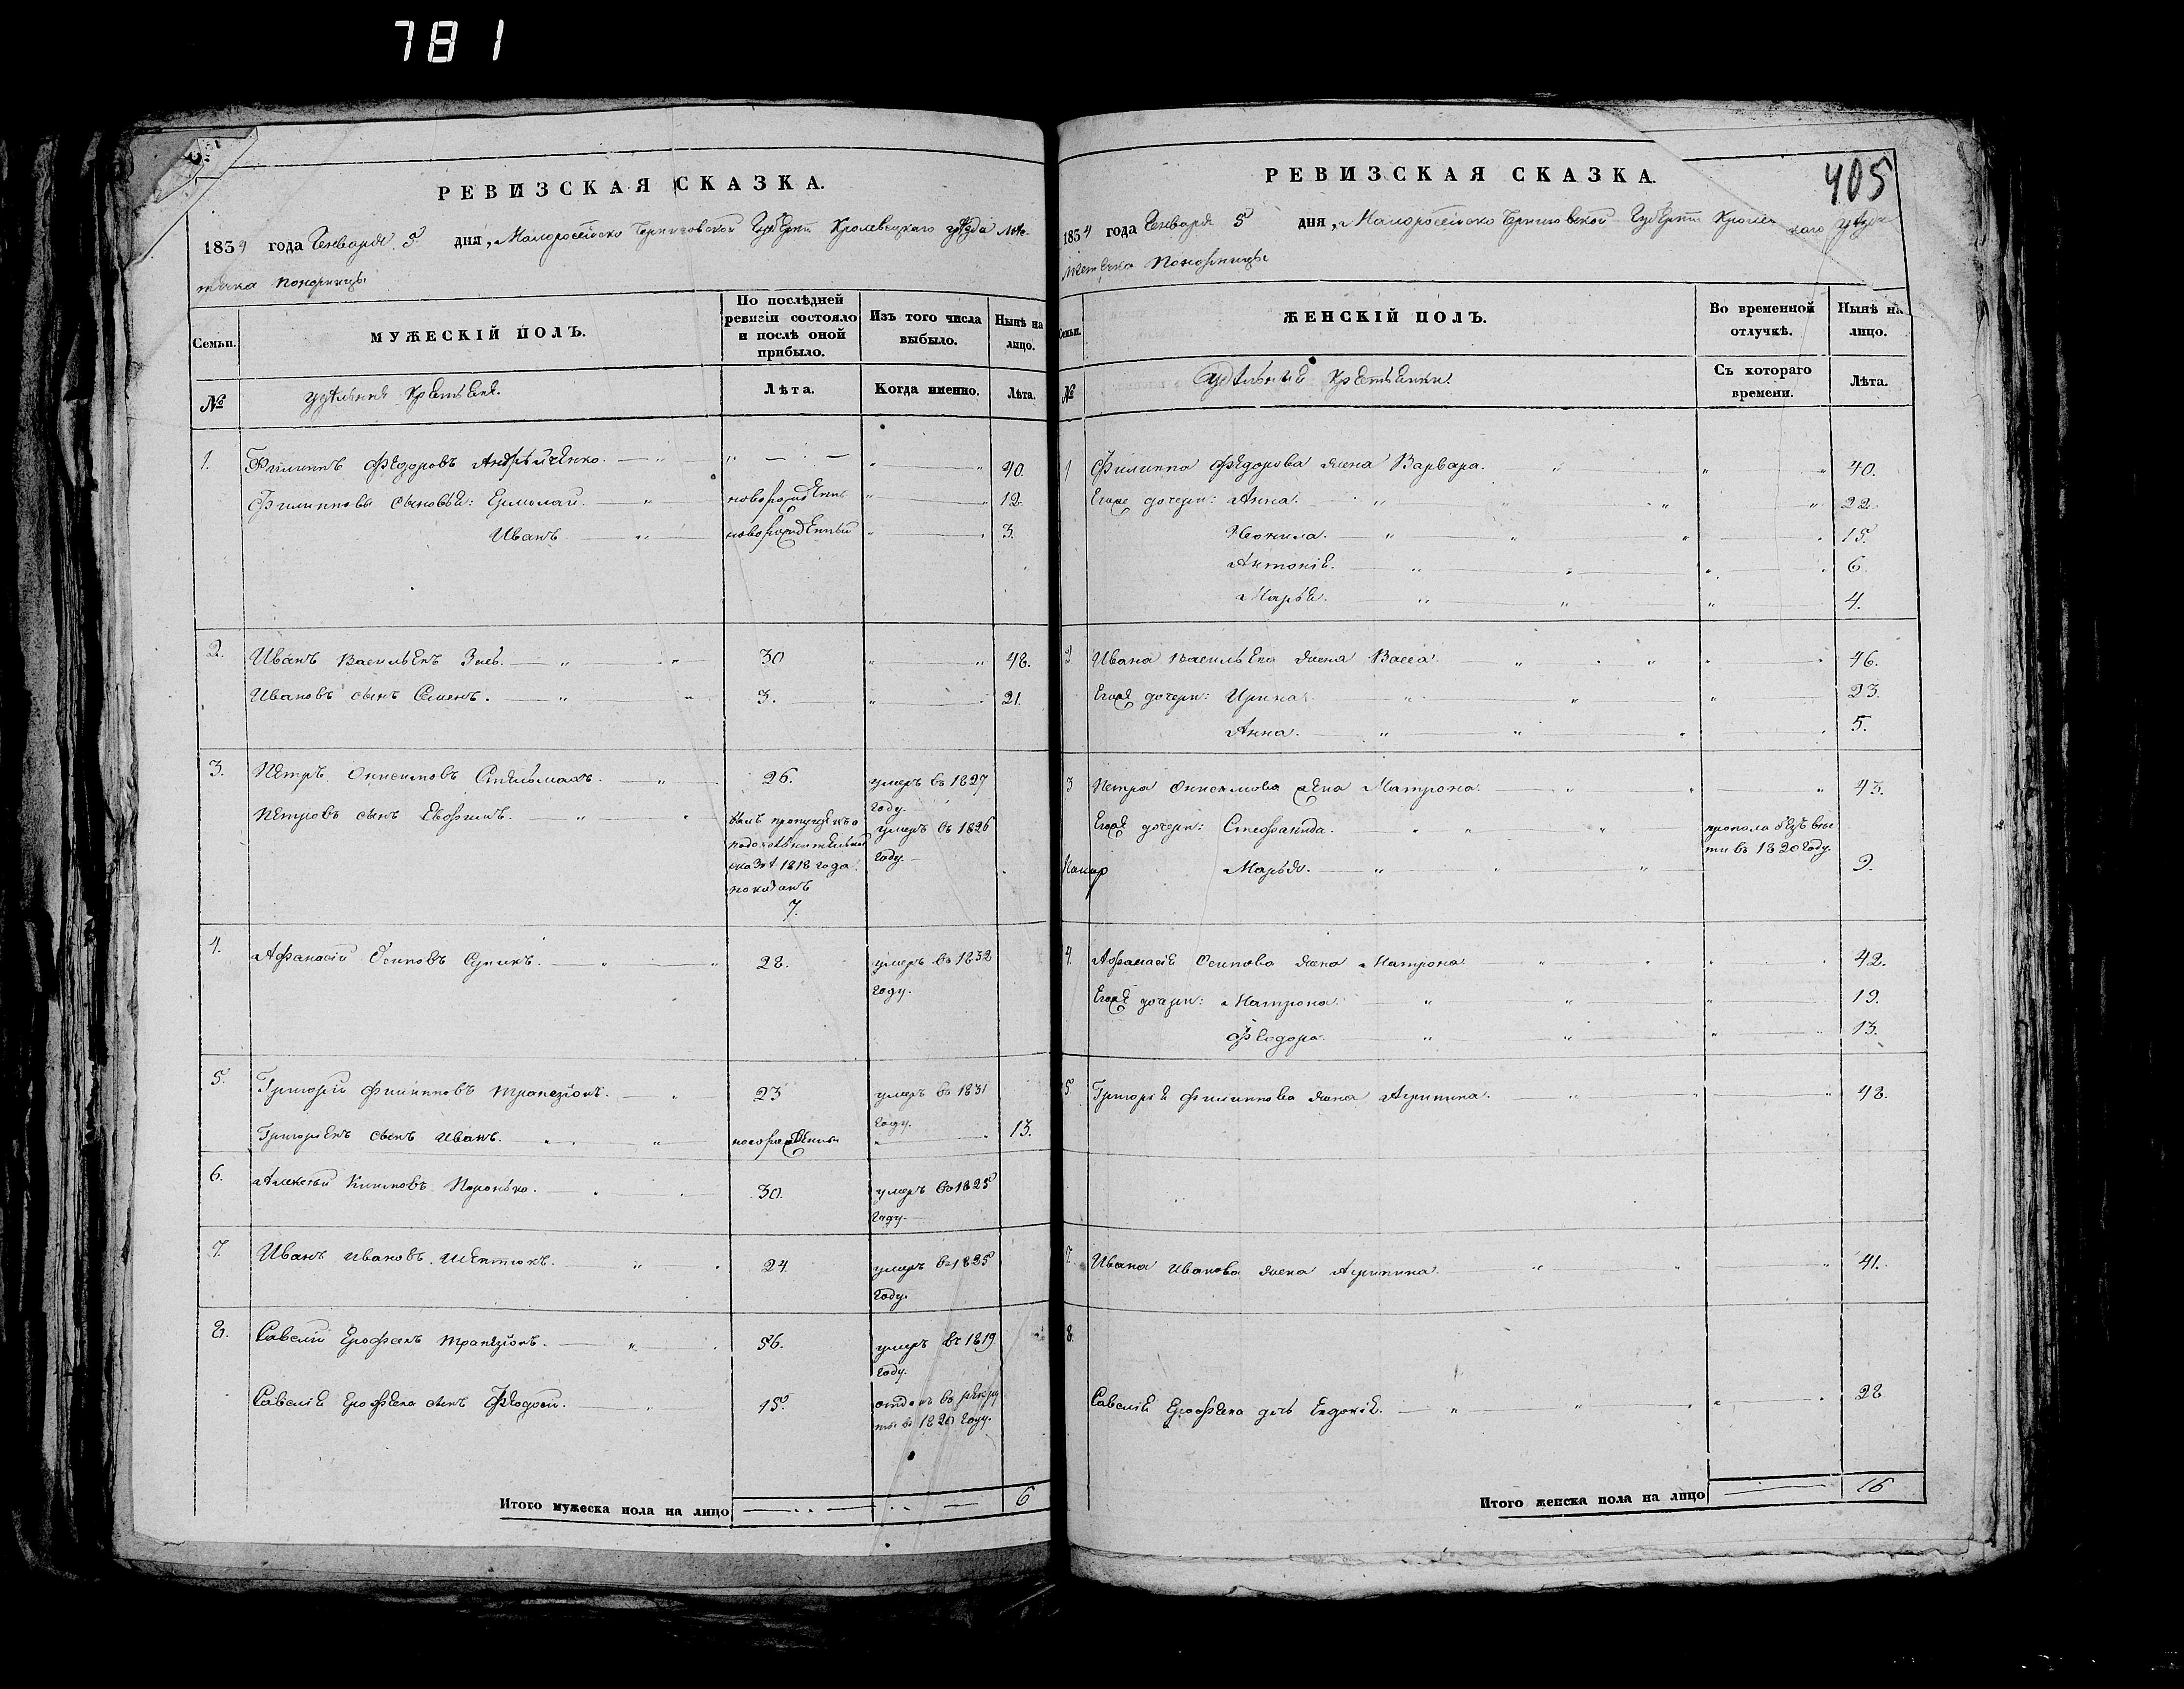 781
РЕВИЗСКАЯ СКАЗКА.
1834 года Генваря 5 дня, Малоросѣйско Черниговской Губерніи Кролевецкаго уѣзда мѣс
течка Понорницы
Семьи.
МУЖЕСКІЙ ПОЛЪ.
По послѣдней ревизіи состояло и послѣ оной прибыло.
Изъ того числа выбыло.
Нынѣ на лицо.
№
Удѣльныя Крестьяне.
Лѣта.
Когда именно.
Лѣта.
1. Филиппъ Федоровъ Андрѣйченко. 40.
Филипповы сыновья: Ермолай. новорожденны 12.
Иванъ новорожденный 3.
2. Иванъ Васильевъ 30 48.
Ивановъ сынъ Семенъ. 3. 21.
3. Петръ Онисимовъ Стельмахъ. 26. умеръ въ 1827
году.
Петровъ сынъ Евфимъ. былъ пропущенъ
умеръ въ 1826
году.
сказкѣ 1818 года
показанъ
7.
4. Афанасій Осиповъ 28. умеръ въ 1832
году.
5. Григорій Филипповъ Трапезіонъ. 23 умеръ въ 1831
году.
Григорьевъ сынъ Иванъ. новорожденный 13.
6. Алексѣй Климовъ 30. умеръ въ 1825
году.
7. Иванъ Ивановъ 24 умеръ въ 1825
году.
8. Савелій Ерофеевъ Трапезіонъ. 56. умеръ въ 1819
году.
Савелія Ерофеева сынъ Федотъ. 15. отданъ въ рекру
ты въ 1820 году.
Итого мужеска пола на лицо 6
405
РЕВИЗСКАЯ СКАЗКА.
1834 года Генваря 5 дня, Малоросѣйско Черниговской Губерніи Кролевецкаго уѣзда
местечка Понорницы
Семьи.
ЖЕНСКІЙ ПОЛЪ.
Во временной отлучкѣ.
Нынѣ на лицо.
№
Удѣльныя Крестьянки.
Съ котораго времени.
Лѣта.
1 Филиппа Федорова жена Варвара. 40.
Егоже дочери: Анна. 22.
Неонила. 15.
Антонія. 6.
Марья. 4.
2 Ивана Васильева жена Васса. 46.
Егоже дочери: Ирина. 23.
Анна. 5.
3 Петра Онисимова жена Матрона. 43.
Егоже дочери: Стефанида. пропала безъ вѣс
ти въ 1820 году.
Марья. 9.
4. Афанасія Осипова жена Матрона 42.
Егоже дочери: Матрона 19.
Федора. 13.
5 Григорія Филиппова жена Агрипина. 48.
7. Ивана Иванова жена Агрипина. 41.
8.
Савелія Ерофеева дочь Евдокія. 28
Итого женска пола на лицо 16